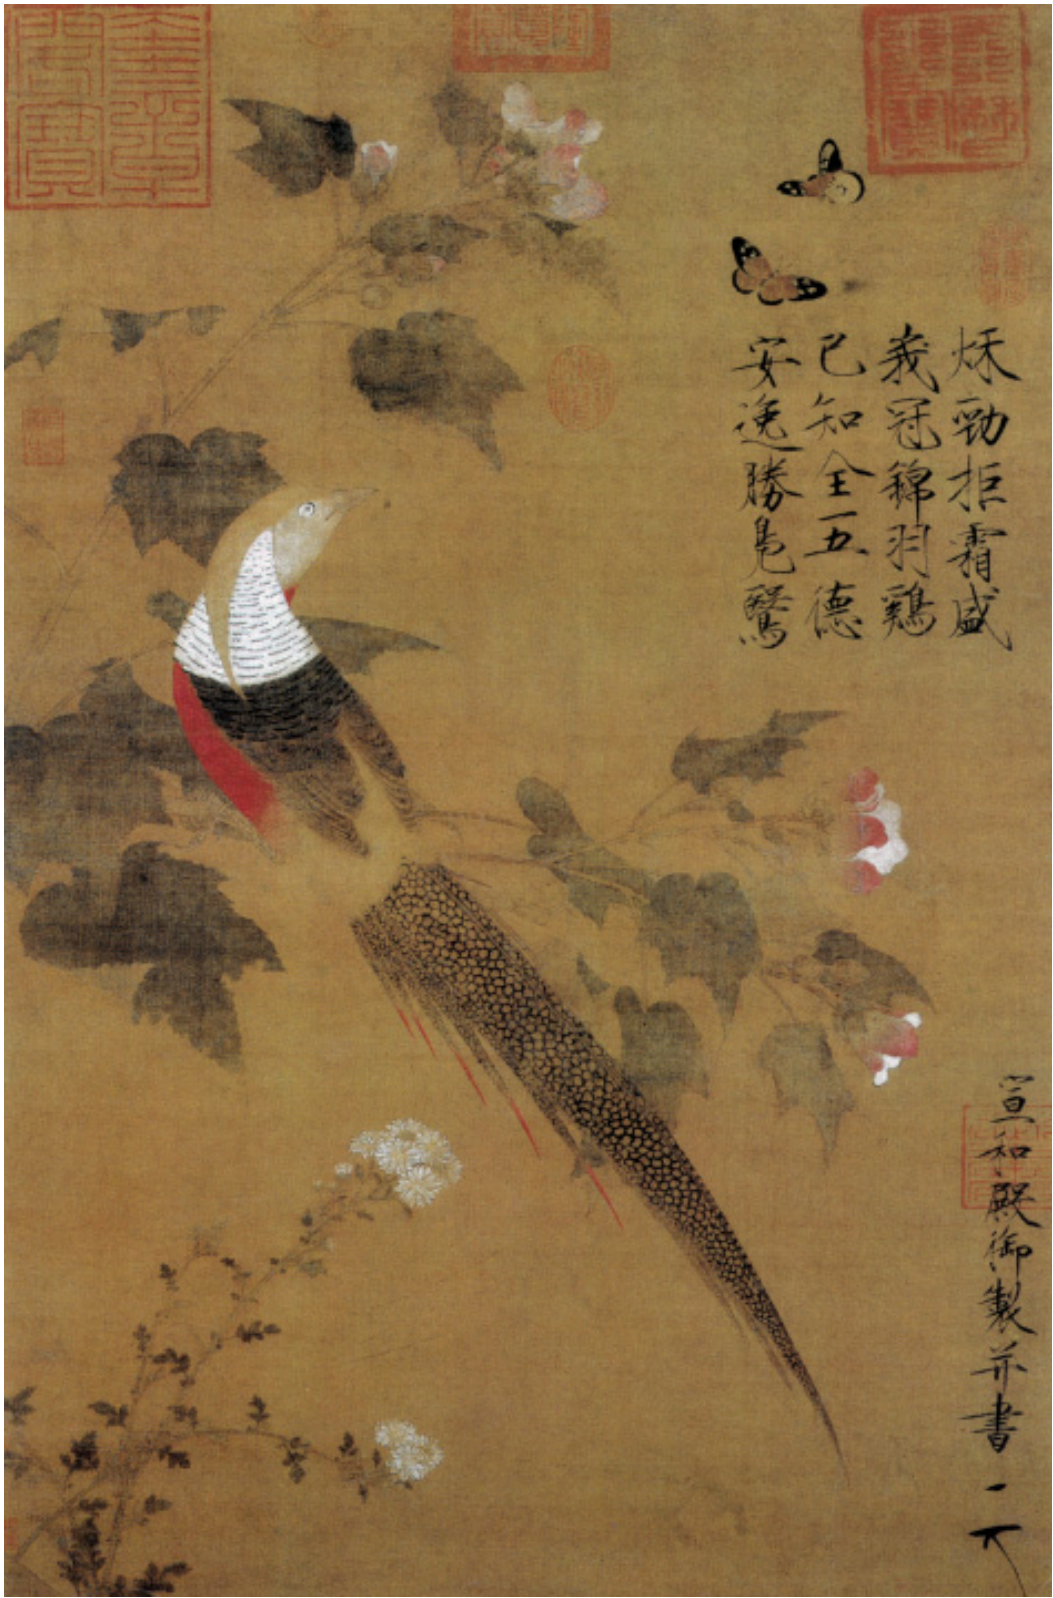 秋勁拒霜盛
峩冠錦羽鷄
已知全五德
安逸勝鳧鷖
宣和殿御製并書
奎章
閣寶